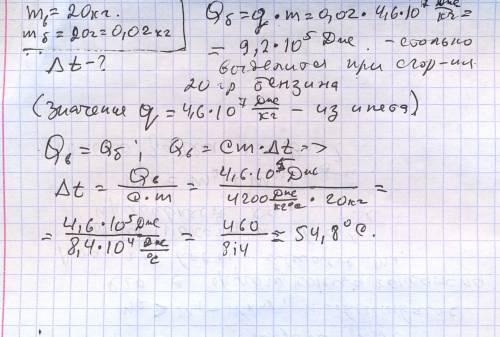 m_в = 20кг.
m_б = 20г = 0,02 кг
Δt - ?
Q_б = q · m = 0,02 · 4,6·10⁷ Дж/кг =
= 9,2·10⁵ Дж. - столько
выделится при сгор-ии
20 гр бензина
(Значение q = 4,6·10⁷ Дж/кг - из инета)
Q_в = Q_б ; Q_в = cm·Δt =>
Δt = Q_в / c·m = 4,6·10⁵ Дж / 4200 Дж/кг°C · 20кг =
= 4,6·10⁵ Дж / 8,4·10⁴ Дж/°C = 460 / 8,4 = 54,8°C.